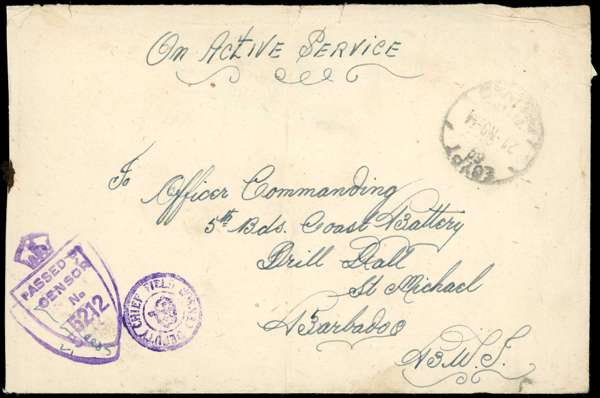 On Active Service
EGYPT
To Officer Commanding
5th Bds. Coast Battery
Drill Hall
St Michael
Barbados
B.W.I.
PASSED BY
CENSOR
No
5212
DEPUTY CHIEF FIELD CENSOR